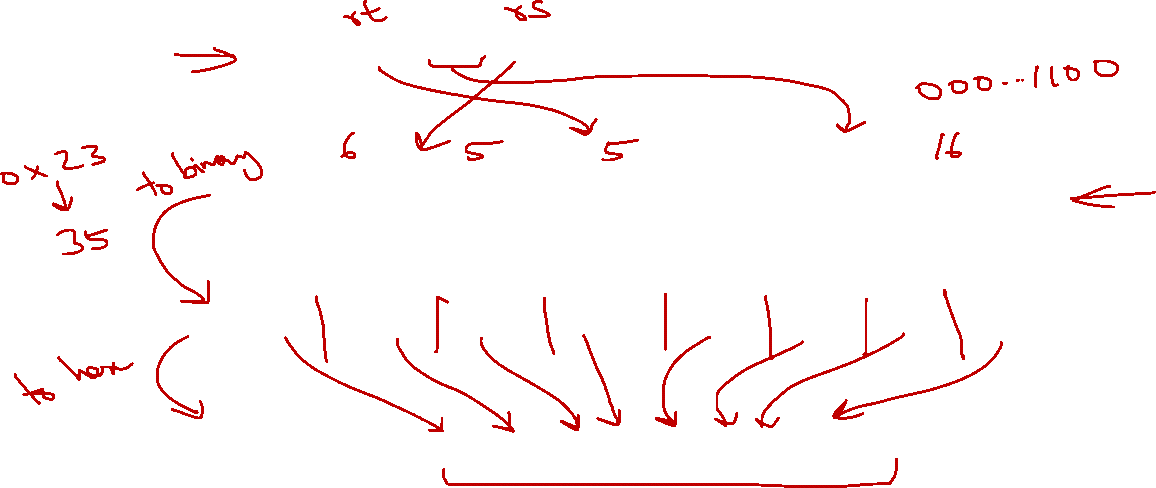 rt rs
000...1100
6 5 5 16
0x23
to binary
35
to hex